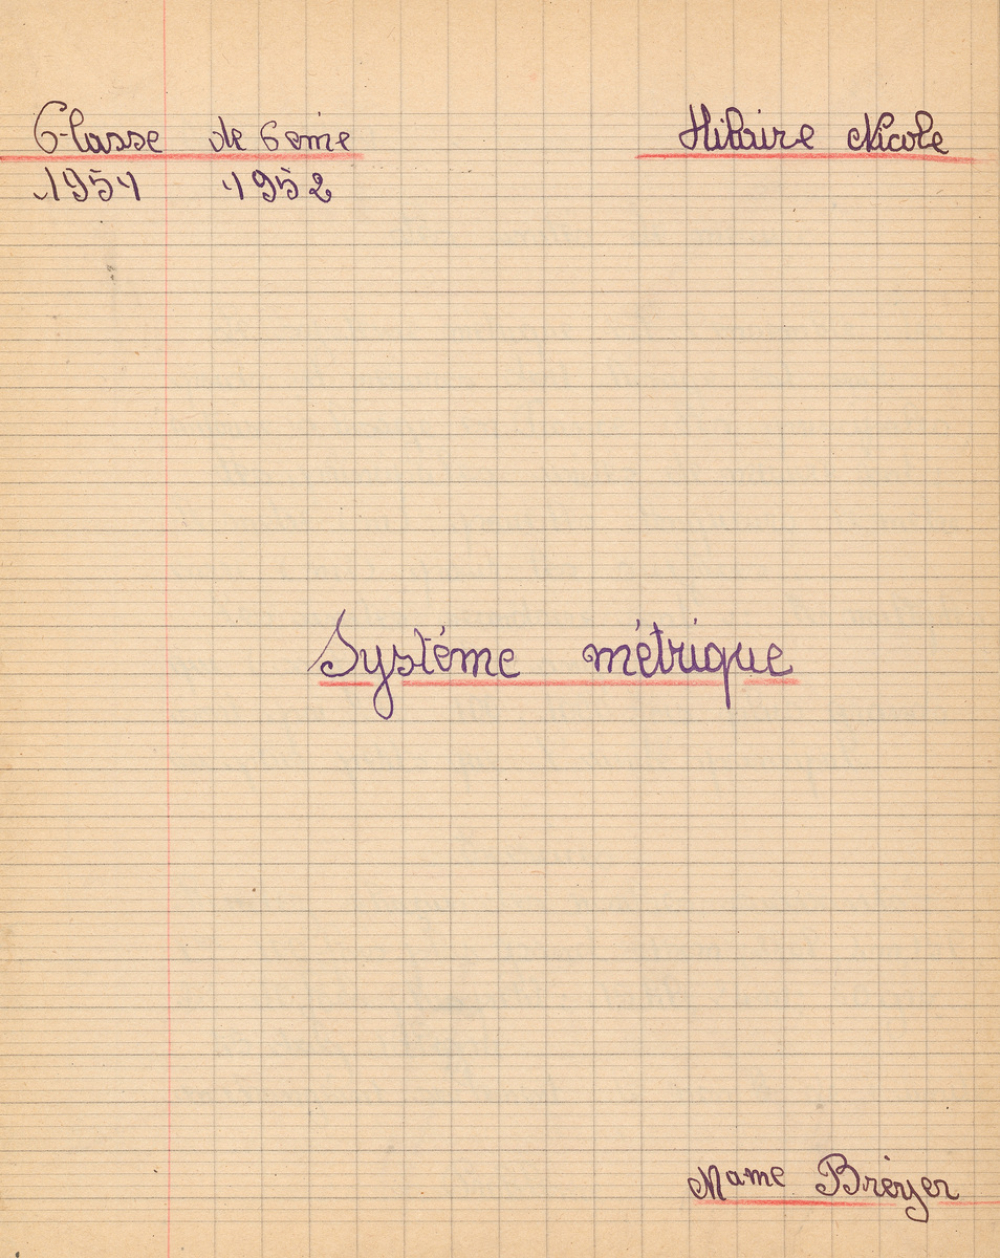 Classe de 6ème Hilaire Nicole
1951 1952
Système métrique
Mame Bréyer